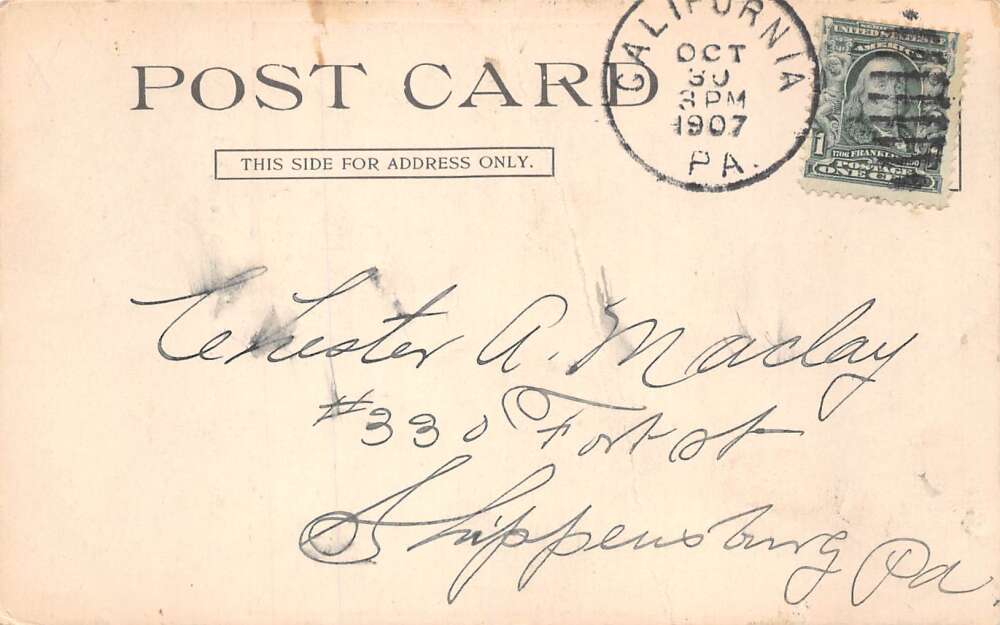 POST CARD
THIS SIDE FOR ADDRESS ONLY.
CALIFORNIA
OCT
30
3 PM
1907
PA.
UNITED STATES OF
AMERICA
1
FRANKLIN
POSTAGE
ONE CENT
Chester A. Maclay
#330 Fort St
Shippensburg Pa